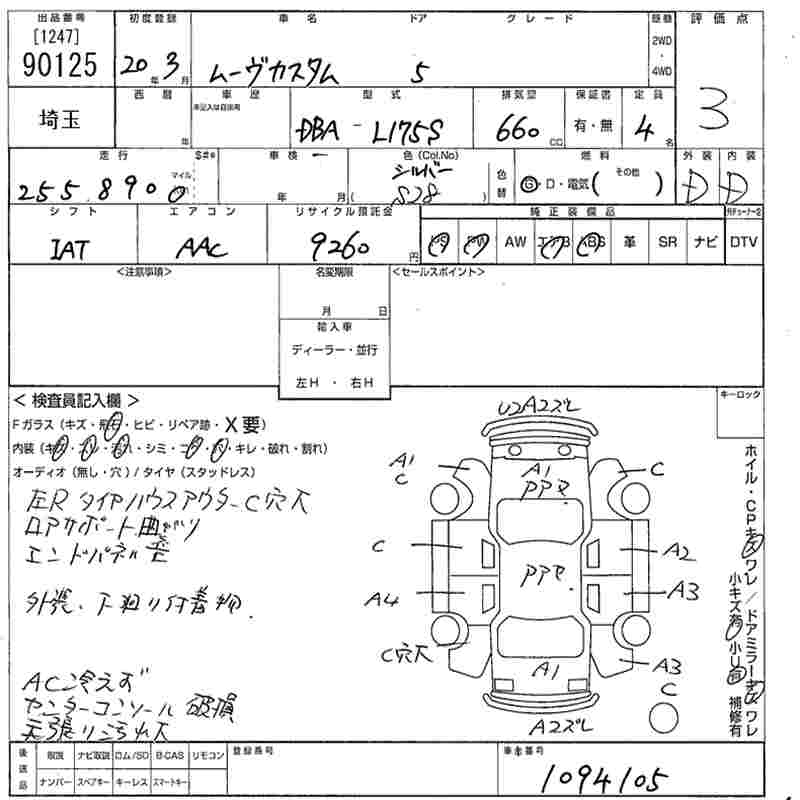 出品番号 初度登録 車名 ドア グレード 駆動 評価点
[1247]
90125 20年 3月 ムーヴカスタム 5 2WD・4WD 3
埼玉 西暦 年 車歴 未記入は自家用 型式 DBA-L175S 排気量 660 CC 保証書 有・無 定員 4名
走行 255.8900 マイル S#* 車検 年 月 色(Col.No) シルバー ( S28 ) 色替 燃料 G・D・電気( その他 ) 外装 D 内装 D
シフト IAT エアコン AAC リサイクル預託金 9260円 純正装備品 PS PW AW エアB ABS 革 SR ナビ DTV
<注意事項> 名変期限 <セールスポイント>
月 日
輸入車
ディーラー・並行
左H・右H
キーロック
<検査員記入欄>
Fガラス(キズ・飛石・ヒビ・リペア跡・X要)
内装(キズ・スレ・汚れ・シミ・コゲ・穴・キレ・破れ・割れ)
オーディオ(無し・穴)/タイヤ(スタッドレス)
左Rタイヤハウスアウター C穴大
ロアサポート曲がり
エンドパネル歪
外張、下廻り付着物.
AC冷えず
センターコンソール 破損
天張り汚れ大
U2A2ズレ
A1
C
A1
PPマ
C
C
A2
PPマ
A4
A3
C穴大
A1
A3
C
A2ズレ
ホイル・CPキズワレ/ドアミラーキズワレ
小キズ有 小U有 補修有
後送品 取説 ナビ取説 ロム/SD B-CAS リモコン 登録番号 車台番号
ナンバー スペアキー キーレス スマートキー 1094105